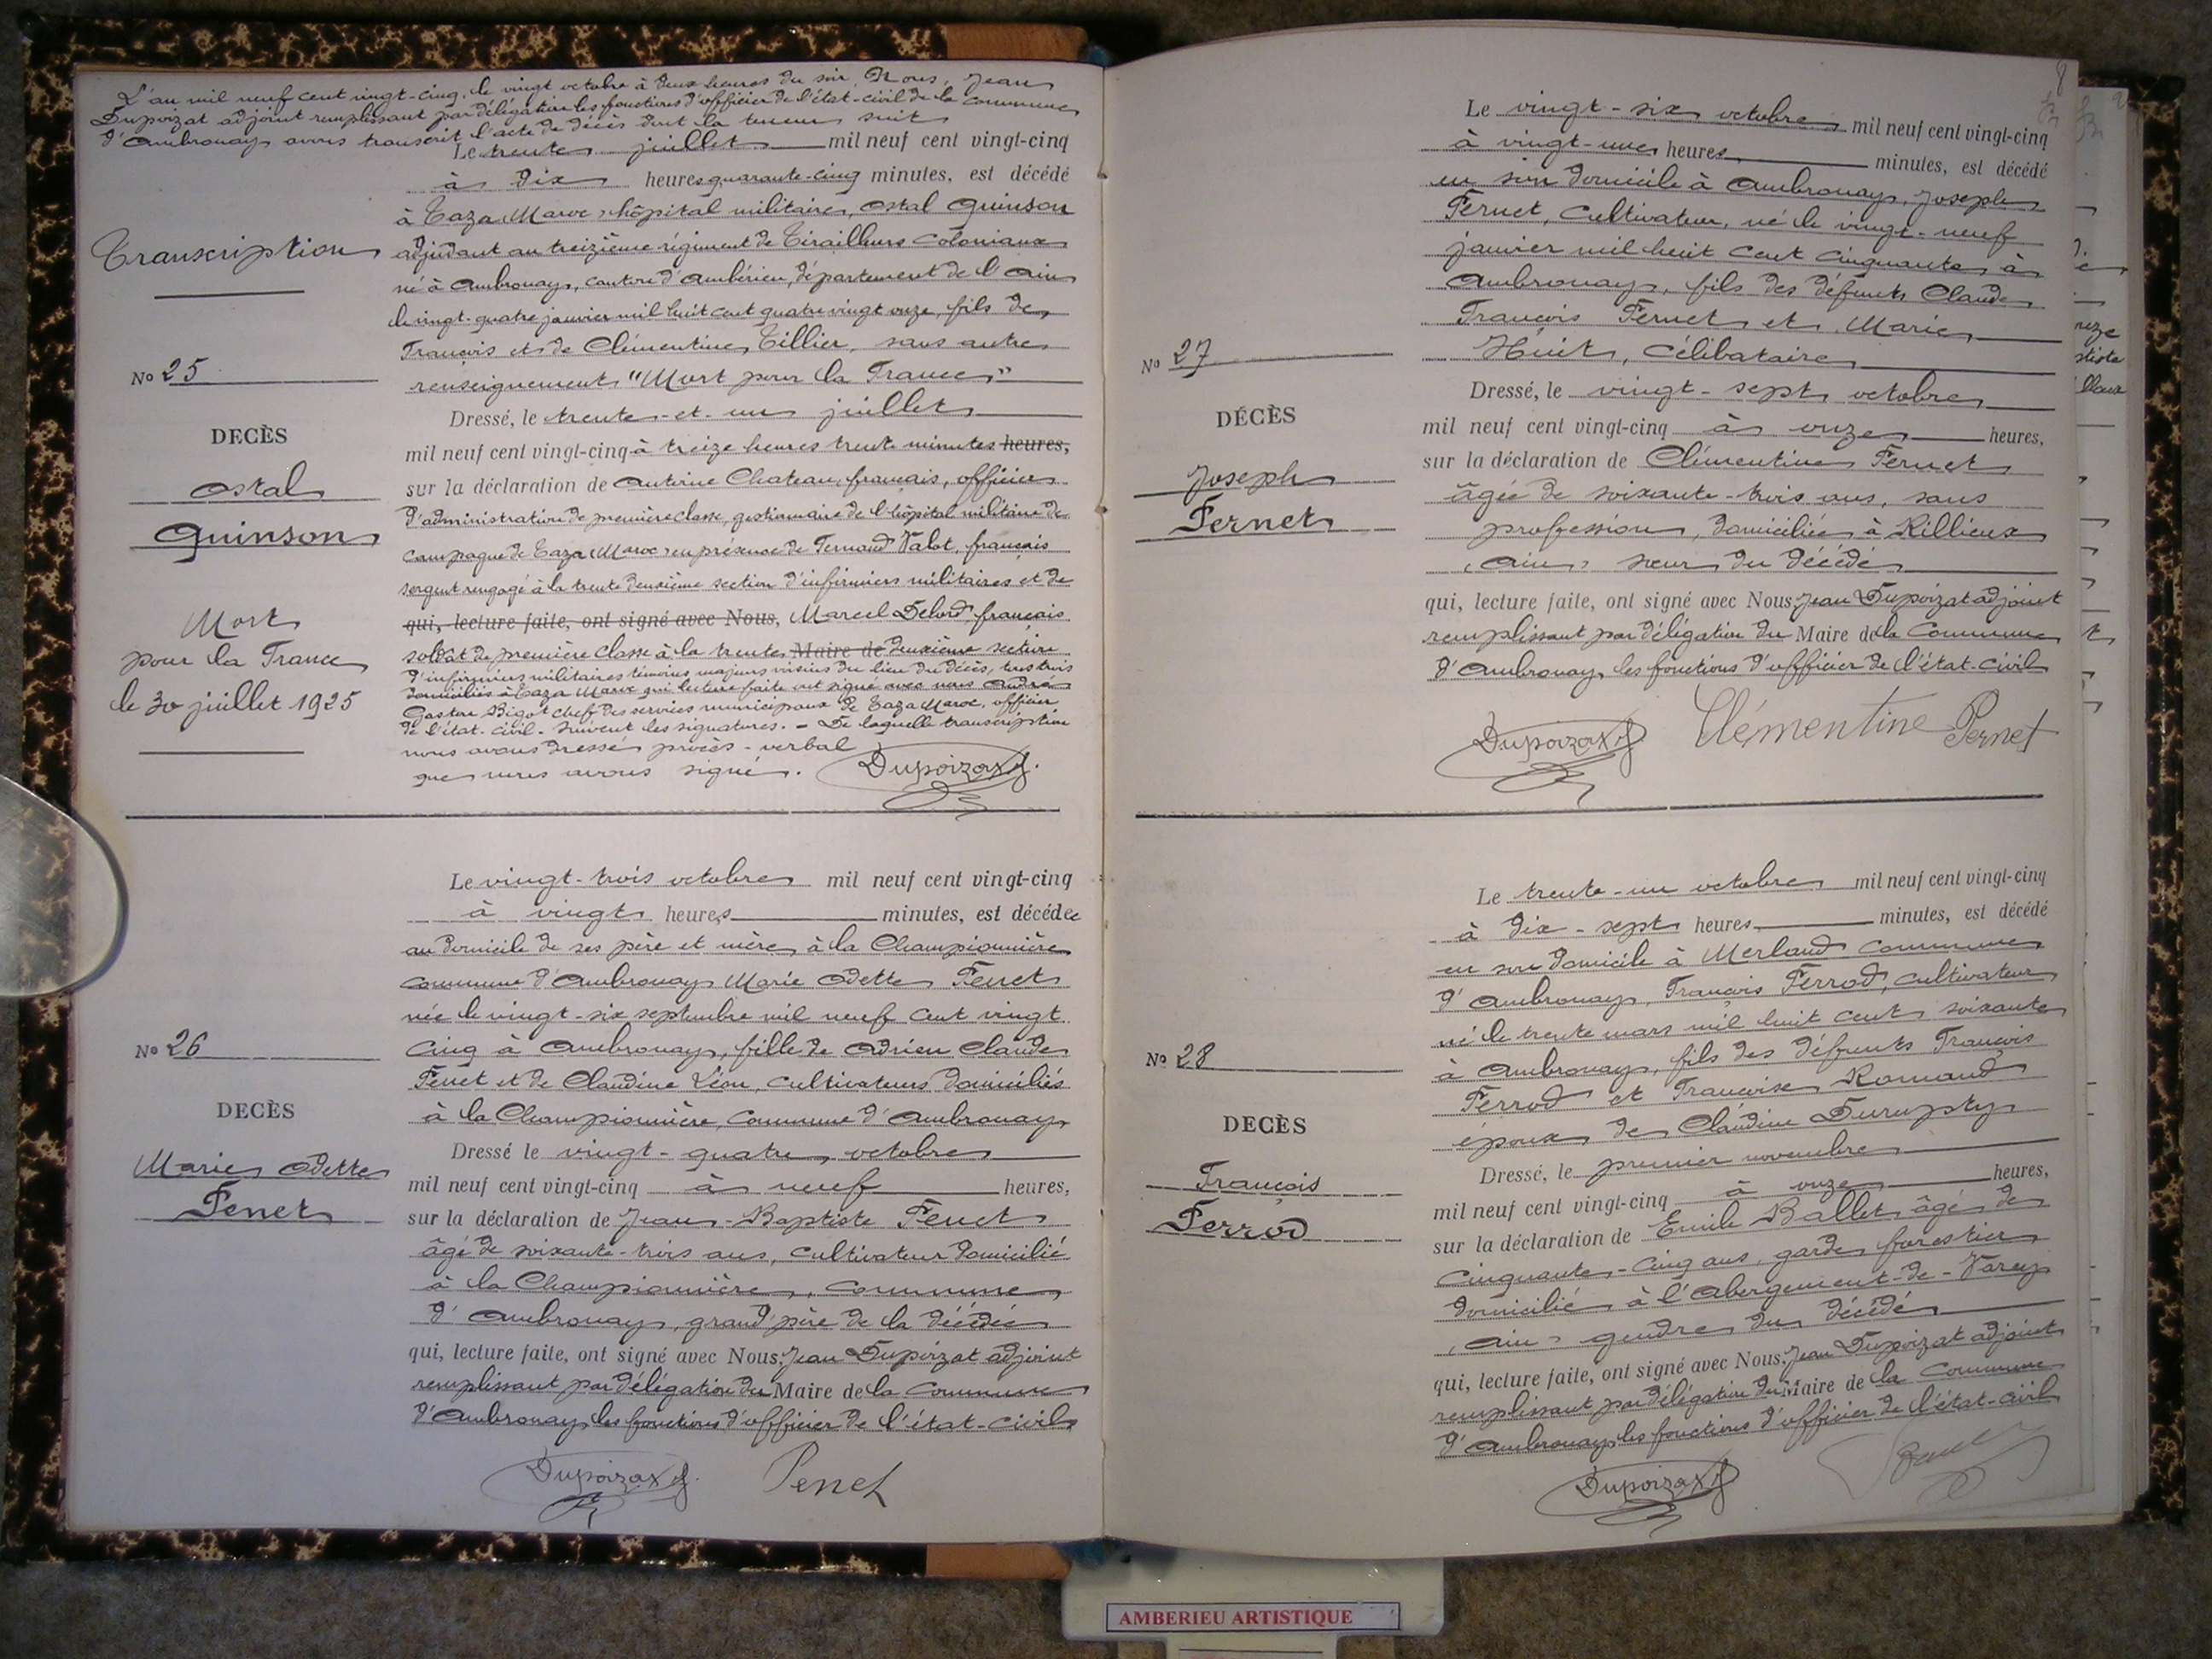 L'an mil neuf cent vingt-cinq, le vingt octobre à deux heures du soir, Nous, Jean
Dupoizat adjoint remplissant par délégation les fonctions d'officier de l'état-civil de la commune
d'Ambronay avons transcrit l'acte de décès dont la teneur suit
Transcription
No 25
DECÈS
Ostal
Quinson
Mort
pour la France
le 30 juillet 1925
Le trente juillet mil neuf cent vingt-cinq
à dix heures quarante-cinq minutes, est décédé
à Taza (Maroc) hôpital militaire, Ostal Quinson
adjudant au treizième régiment de Tirailleurs Coloniaux
né à Ambronay, canton d'Ambérieu, département de l'Ain
le vingt-quatre janvier mil huit cent quatre vingt onze, fils de
François et de Clémentine Tillier, sans autre
renseignement "Mort pour la France"
Dressé, le trente-et-un juillet
mil neuf cent vingt-cinq à treize heures trente minutes heures,
sur la déclaration de Antoine Chateau, français, officier
d'administration de première classe, gestionnaire de l'hôpital militaire de
campagne de Taza (Maroc) en présence de Fernand Valot, français
sergent rengagé à la trente deuxième section d'infirmiers militaires et de
qui, lecture faite, ont signé avec Nous, Marcel Delord, français
soldat de première classe à la trente Maire de deuxième section
d'infirmiers militaires témoins majeurs voisins du lieu du décès, tous trois
domiciliés à Taza Maroc qui lecture faite ont signé avec nous André
Gaston Bigot chef des services municipaux de Taza Maroc, officier
de l'état-civil. Suivent les signatures. - De laquelle transcription
nous avons dressé procès-verbal
que nous avons signé. Dupoizat J.
No 26
DECÈS
Marie Odette
Fenet
Le vingt-trois octobre mil neuf cent vingt-cinq
à vingt heures minutes, est décédée
au domicile de ses père et mère, à la Championnière
commune d'Ambronay Marie Odette Fenet
née le vingt-six septembre mil neuf cent vingt
cinq à Ambronay, fille de Adrien Claude
Fenet et de Claudine Léon, cultivateurs domiciliés
à la Championnière, commune d'Ambronay
Dressé le vingt-quatre octobre
mil neuf cent vingt-cinq à neuf heures,
sur la déclaration de Jean-Baptiste Fenet
âgé de soixante-trois ans, cultivateur domicilié
à la Championnière, commune
d'Ambronay, grand'père de la décédée
qui, lecture faite, ont signé avec Nous, Jean Dupoizat adjoint
remplissant par délégation du Maire de la commune
d'Ambronay les fonctions d'officier de l'état-civil
Dupoizat J. Penet
8
No 27
DÉCÈS
Joseph
Fernet
Le vingt-six octobre mil neuf cent vingt-cinq
à vingt-une heures minutes, est décédé
en son domicile à Ambronay, Joseph
Fernet, cultivateur, né le vingt-neuf
janvier mil huit cent cinquante à
Ambronay, fils des défunts Claude
François Fernet et Marie
Huit, célibataire
Dressé, le vingt-sept octobre
mil neuf cent vingt-cinq à onze heures,
sur la déclaration de Clémentine Fernet
âgée de soixante-trois ans, sans
profession, domiciliée à Rillieux
(Ain) sœur du décédé
qui, lecture faite, ont signé avec Nous, Jean Dupoizat adjoint
remplissant par délégation du Maire de la commune
d'Ambronay les fonctions d'officier de l'état-civil
Dupoizat J. Clémentine Pernet
No 28
DECÈS
François
Ferrod
Le trente-un octobre mil neuf cent vingt-cinq
à dix-sept heures minutes, est décédé
en son domicile à Merland commune
d'Ambronay, François Ferrod, cultivateur
né le trente mars mil huit cent soixante
à Ambronay, fils des défunts François
Ferrod et Françoise Romand
époux de Claudine Durupty
Dressé, le premier novembre
mil neuf cent vingt-cinq à onze heures,
sur la déclaration de Emile Ballet, âgé de
cinquante-cinq ans, garde forestier
domicilié à l'Abergement-de-Varey
(Ain) gendre du décédé
qui, lecture faite, ont signé avec Nous, Jean Dupoizat adjoint
remplissant par délégation du Maire de la commune
d'Ambronay les fonctions d'officier de l'état-civil
Dupoizat J.
AMBERIEU ARTISTIQUE